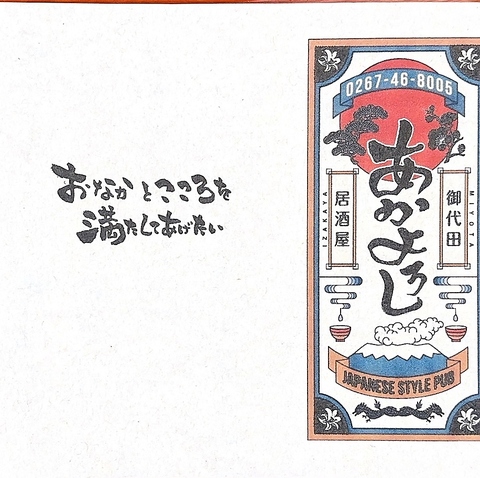 おなかとこころを
満たしてあげたい
0267-46-8005
あかよろし
御代田
MIYOTA
居酒屋
IZAKAYA
JAPANESE STYLE PUB